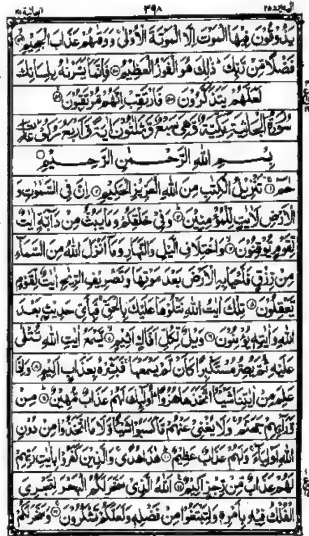 الدخان ٤٤ ٣٩٨ اليه يرد ٢٥
يَذُوْقُوْنَ فِيْهَا الْمَوْتَ اِلَّا الْمَوْتَةَ الْاُوْلٰى وَوَقٰىهُمْ عَذَابَ الْجَحِيْمِ
فَضْلًا مِّنْ رَّبِّكَ ذٰلِكَ هُوَ الْفَوْزُ الْعَظِيْمُ فَاِنَّمَا يَسَّرْنٰهُ بِلِسَانِكَ
لَعَلَّهُمْ يَتَذَكَّرُوْنَ فَارْتَقِبْ اِنَّهُمْ مُّرْتَقِبُوْنَ
سُوْرَةُ الْجَاثِيَةِ مَكِّيَّةٌ وَّهِيَ سَبْعٌ وَّثَلٰثُوْنَ اٰيَةً وَّاَرْبَعُ رُكُوْعَاتٍ
بِسْمِ اللهِ الرَّحْمٰنِ الرَّحِيْمِ
حٰمٓ تَنْزِيْلُ الْكِتٰبِ مِنَ اللهِ الْعَزِيْزِ الْحَكِيْمِ اِنَّ فِي السَّمٰوٰتِ وَ
الْاَرْضِ لَاٰيٰتٍ لِّلْمُؤْمِنِيْنَ وَفِيْ خَلْقِكُمْ وَمَا يَبُثُّ مِنْ دَآبَّةٍ اٰيٰتٌ
لِّقَوْمٍ يُّوْقِنُوْنَ وَاخْتِلَافِ الَّيْلِ وَالنَّهَارِ وَمَآ اَنْزَلَ اللهُ مِنَ السَّمَآءِ
مِنْ رِّزْقٍ فَاَحْيَا بِهِ الْاَرْضَ بَعْدَ مَوْتِهَا وَتَصْرِيْفِ الرِّيٰحِ اٰيٰتٌ لِّقَوْمٍ
يَّعْقِلُوْنَ تِلْكَ اٰيٰتُ اللهِ نَتْلُوْهَا عَلَيْكَ بِالْحَقِّ فَبِاَيِّ حَدِيْثٍ بَعْدَ
اللهِ وَاٰيٰتِهٖ يُؤْمِنُوْنَ وَيْلٌ لِّكُلِّ اَفَّاكٍ اَثِيْمٍ يَّسْمَعُ اٰيٰتِ اللهِ تُتْلٰى
عَلَيْهِ ثُمَّ يُصِرُّ مُسْتَكْبِرًا كَاَنْ لَّمْ يَسْمَعْهَا فَبَشِّرْهُ بِعَذَابٍ اَلِيْمٍ وَاِذَا
عَلِمَ مِنْ اٰيٰتِنَا شَيْئَا اتَّخَذَهَا هُزُوًا اُولٰٓئِكَ لَهُمْ عَذَابٌ مُّهِيْنٌ مِنْ
وَّرَآئِهِمْ جَهَنَّمُ وَلَا يُغْنِيْ عَنْهُمْ مَّا كَسَبُوْا شَيْئًا وَّلَا مَا اتَّخَذُوْا مِنْ دُوْنِ
اللهِ اَوْلِيَآءَ وَلَهُمْ عَذَابٌ عَظِيْمٌ هٰذَا هُدًى وَالَّذِيْنَ كَفَرُوْا بِاٰيٰتِ رَبِّهِمْ
لَهُمْ عَذَابٌ مِّنْ رِّجْزٍ اَلِيْمٌ اللهُ الَّذِيْ سَخَّرَ لَكُمُ الْبَحْرَ لِتَجْرِيَ
الْفُلْكُ فِيْهِ بِاَمْرِهٖ وَلِتَبْتَغُوْا مِنْ فَضْلِهٖ وَلَعَلَّكُمْ تَشْكُرُوْنَ وَسَخَّرَ لَكُمْ